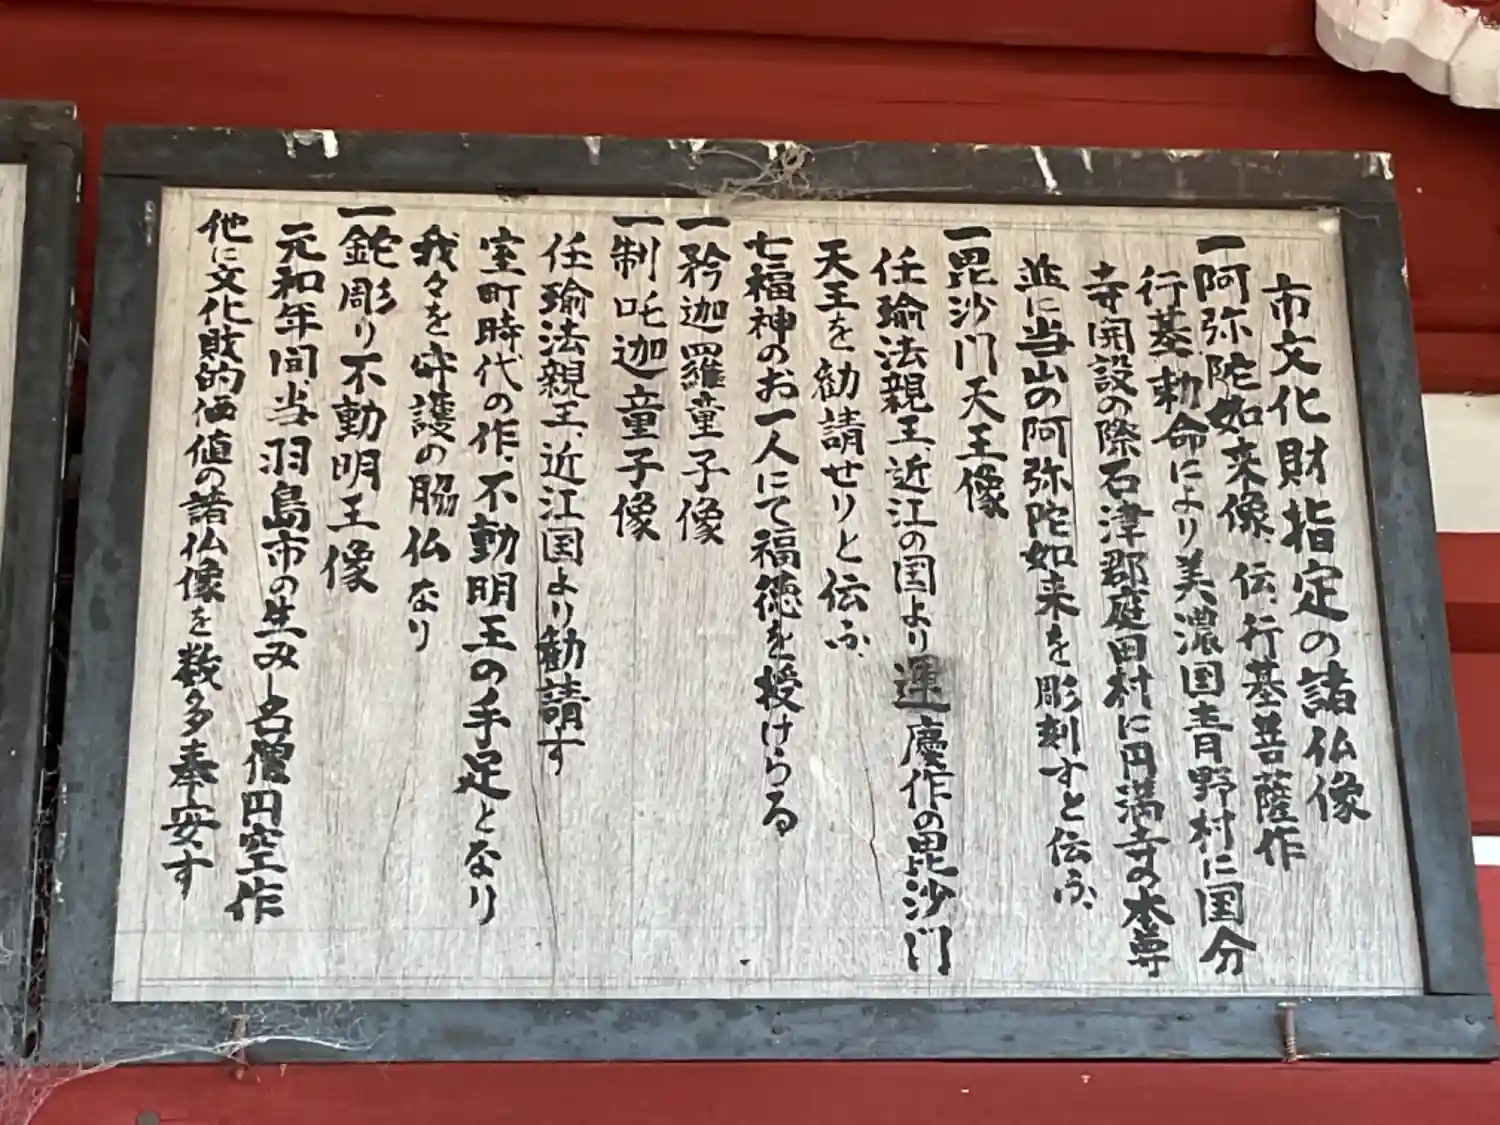 市文化財指定の諸仏像
一阿弥陀如来像 伝、行基菩薩作
行基勅命により美濃国青野村に国分
寺開設の際石津郡庭田村に円満寺の本尊
並に当山の阿弥陀如来を彫刻すと伝ふ、
一毘沙门天王像
任瑜法親王、近江の国より運慶作の毘沙门
天王を勧請せりと伝ふ、
七福神のお一人にて福徳を授けらる
一矜迦羅童子像
一制吒迦童子像
任瑜法親王、近江国より勧請す
室町時代の作、不動明王の手足となり
我々を守護の脇仏なり
一鉈彫り不動明王像
元和年间当羽島市の生みし名僧円空作
他に文化財的価値の諸仏像を数多奉安す